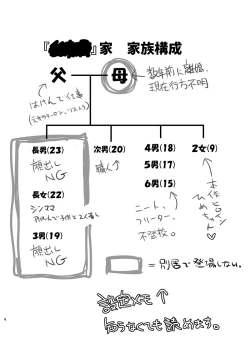 『 』家 家族構成
父
母
数年前に離婚、
現在行方不明
はけんで仕事
(元サラリーマン、リストラ)
長男(23)
顔出し
NG
長女(22)
シンママ
3男(19)
顔出し
NG
次男(20)
働く↑
4男(18)
5男(17)
6男(15)
ニート、
フリーター、
不登校。
2女(9)
本作ヒロイン
ひめちゃん♡
=別居で登場しない。
設定メモ↑
知らなくても読めます。
4